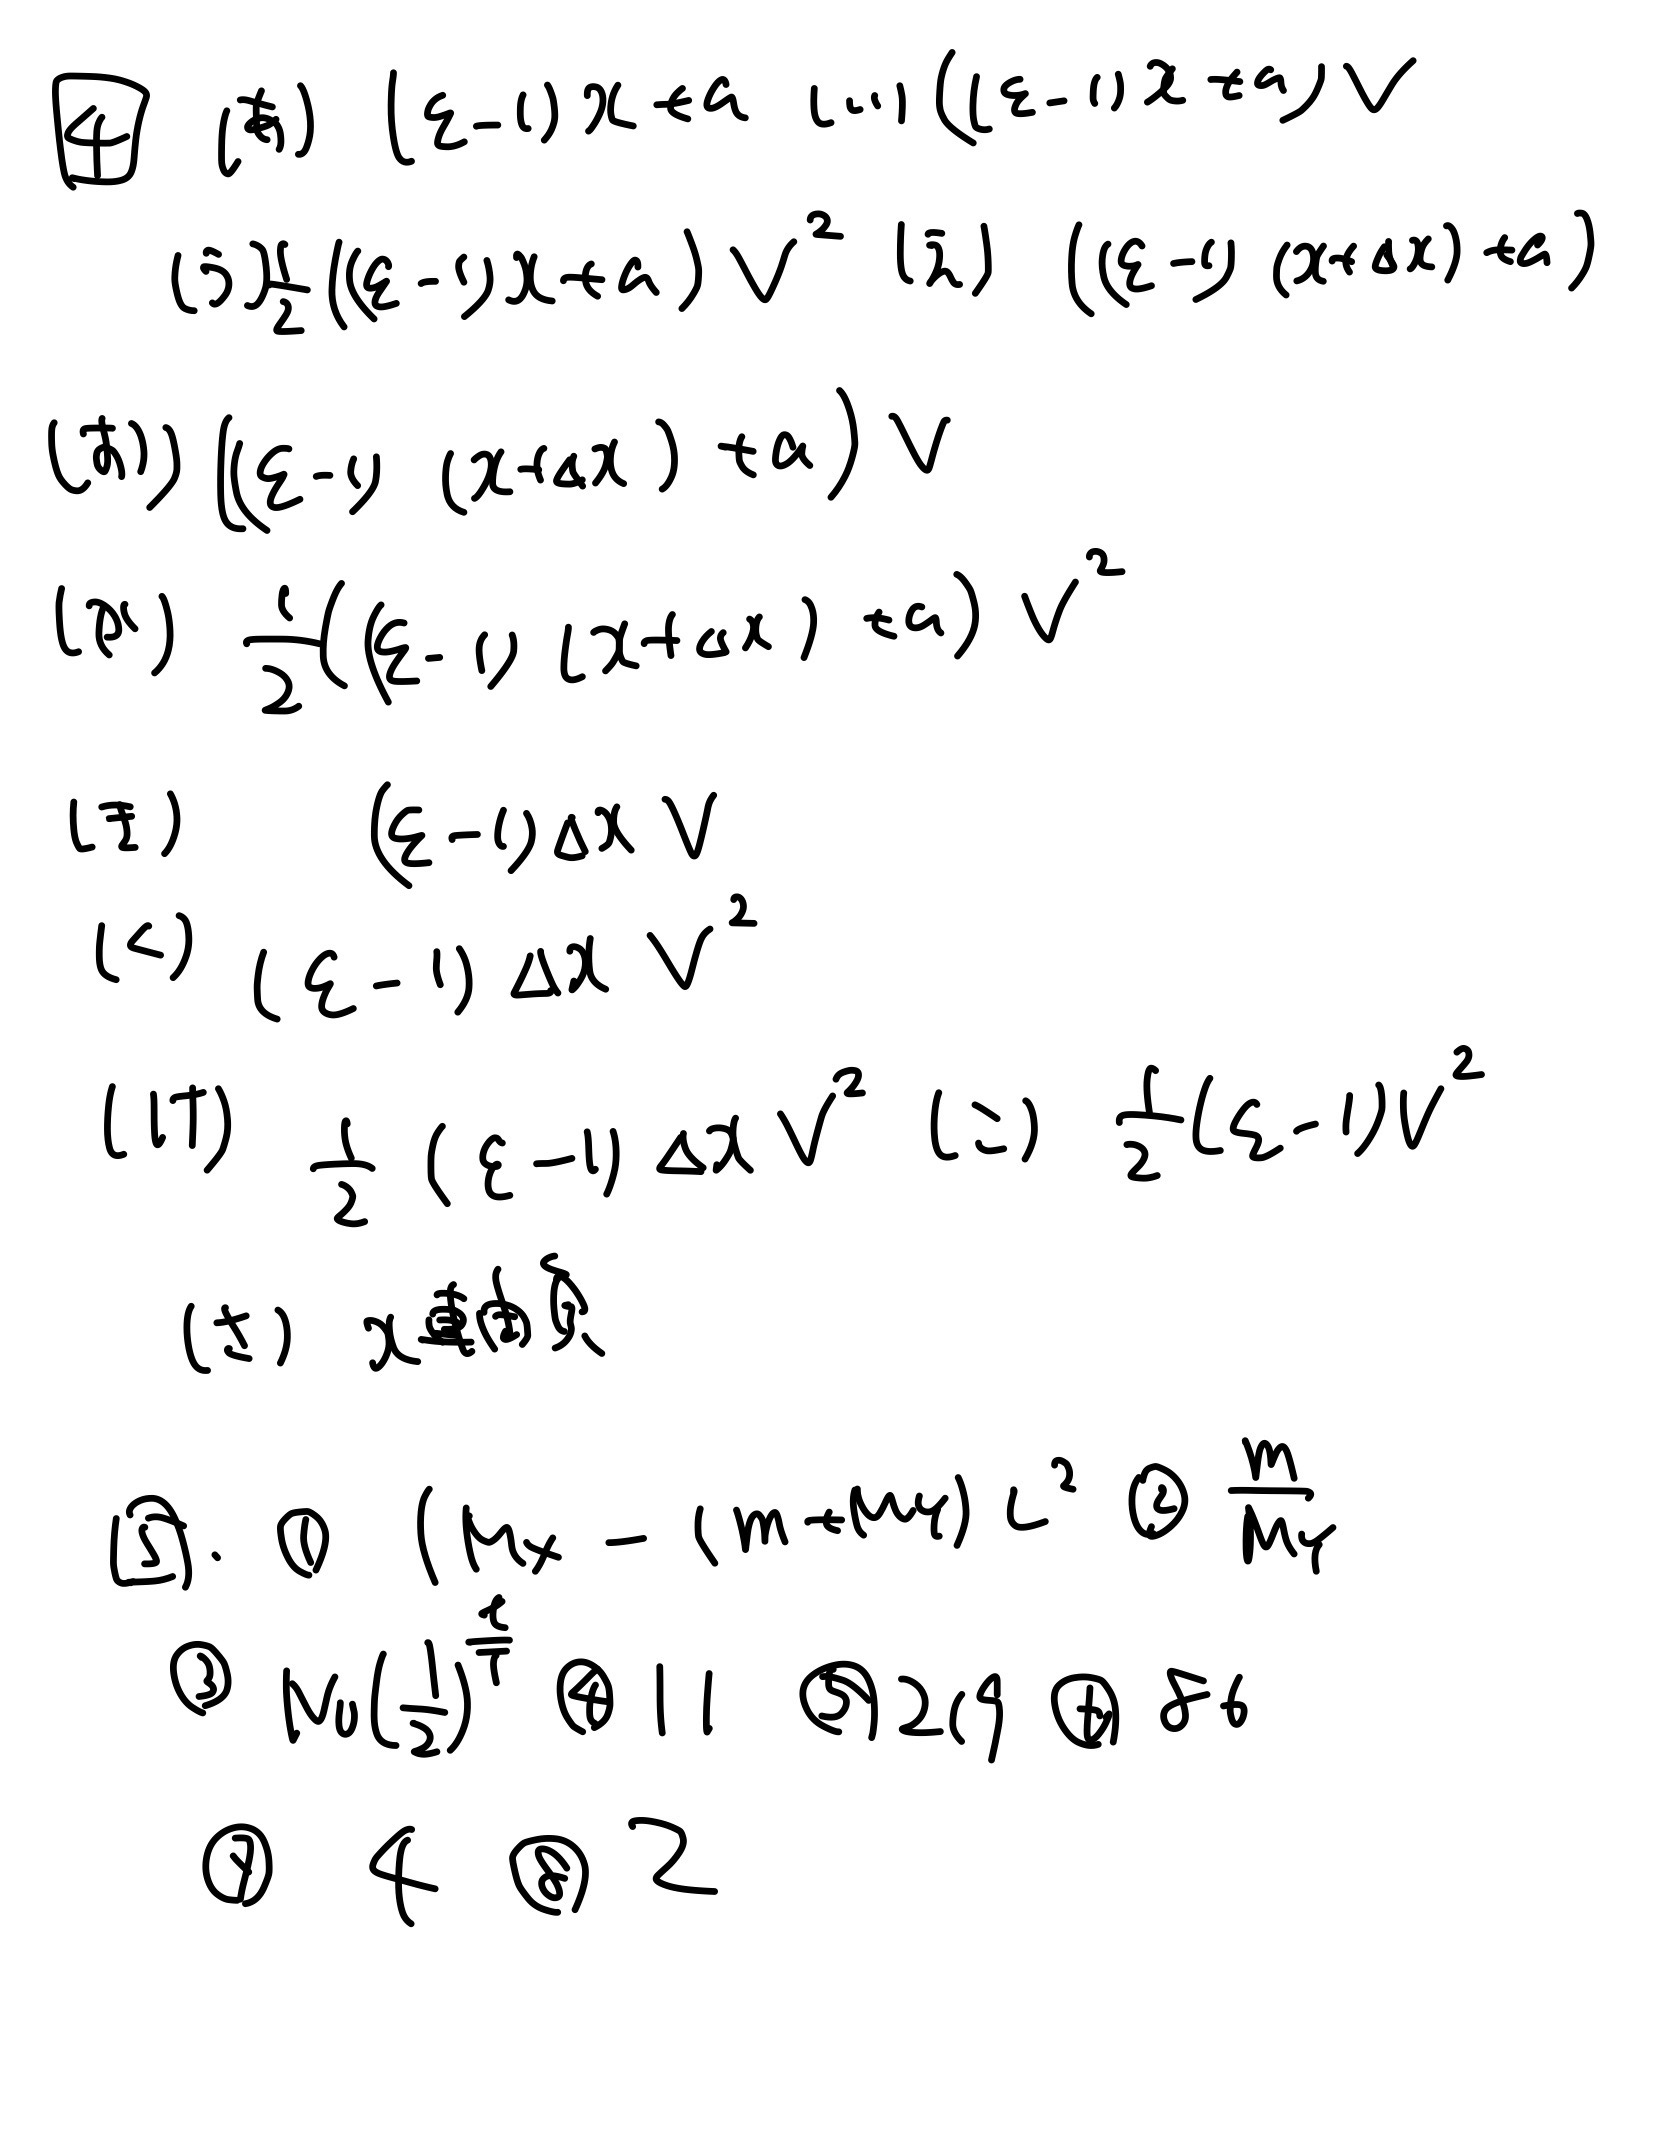 4 (あ) (ε-1)x+a (い) ((ε-1)x+a)V
(う) 1/2((ε-1)x+a)V² (え) ((ε-1)(x+Δx)+a)
(お) ((ε-1)(x+Δx)+a)V
(か) 1/2((ε-1)(x+Δx)+a)V²
(き) (ε-1)ΔxV
(く) (ε-1)ΔxV²
(け) 1/2(ε-1)ΔxV² (こ) 1/2(ε-1)V²
(さ) x軸の負
5. ① (Mx-(m+My)c² ② m/My
③ N0(1/2)^(t/T) ④ 11 ⑤ 219 ⑥ 86
⑦ 4 ⑧ 2